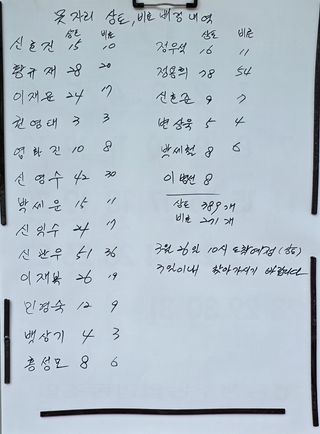 못자리 상토, 비료 배정 내역
상토 비료
신호진 15 10
황규제 28 20
이재윤 24 17
천영태 3 3
염화진 10 8
신영수 42 30
박세운 15 11
신의수 24 17
신관우 51 36
이재복 26 19
민경숙 12 9
백상기 4 3
홍성모 8 6
상토 비료
정우석 16 11
정용희 78 54
신호준 9 7
변상욱 5 4
박세철 8 6
이병선 8
상토 389개
비료 271개
3월 26일 10시 도착예정 (상토)
3일이내 찾아가시기 바랍니다